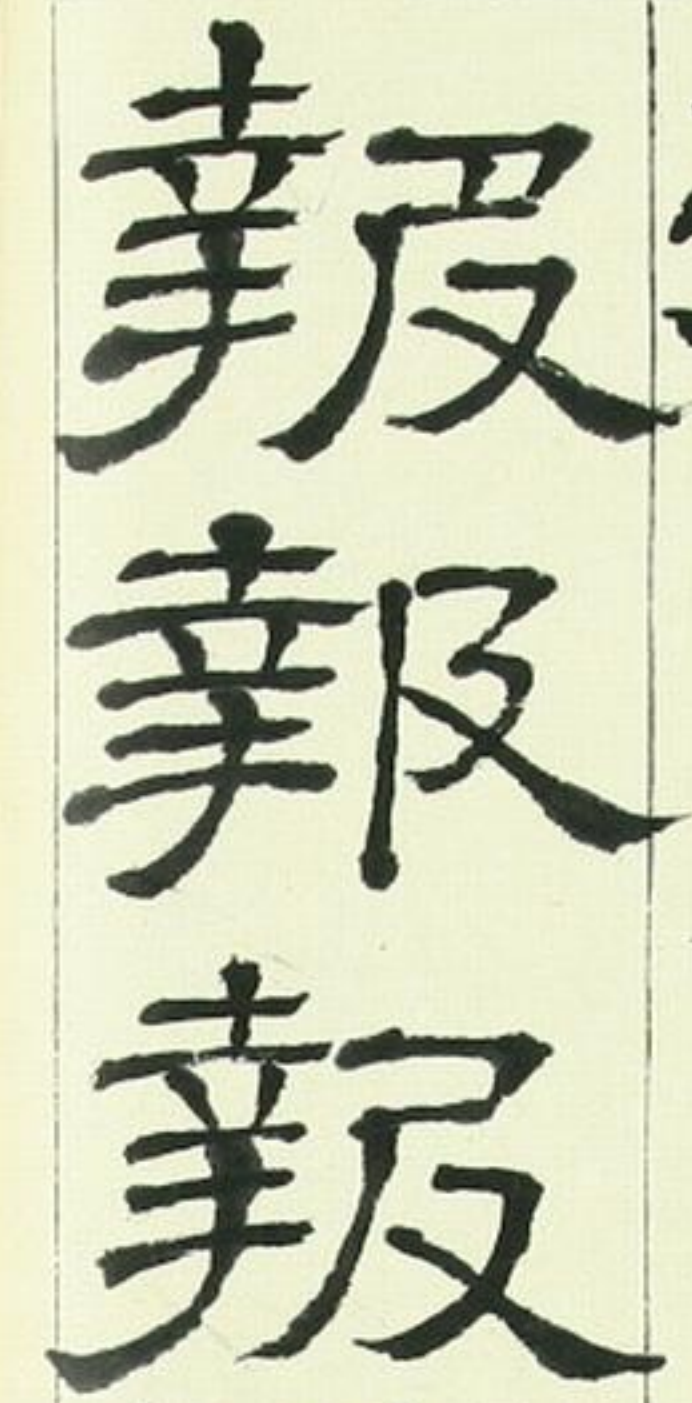 報報報